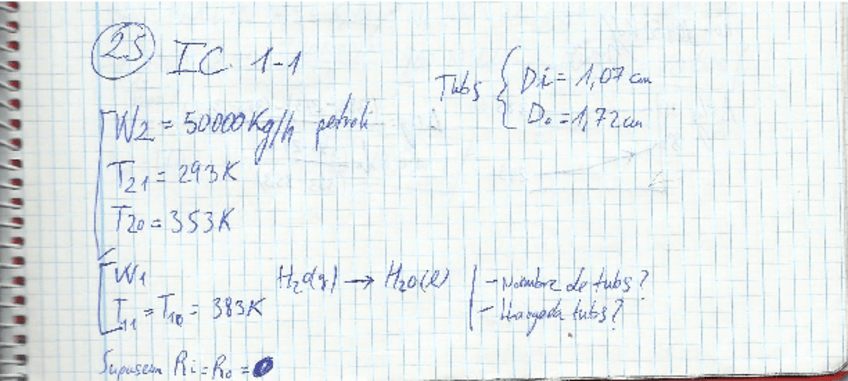 25 IC 1-1
Tubs { Di = 1,07 cm
Do = 1,72 cm
W2 = 50000 Kg/h petroli
T21 = 293K
T20 = 353K
W1 H2O(g) → H2O(l)
T11 = T10 = 383K
- Nombre de tubs?
- Llargada tubs?
Suposem Ri = Ro = 0